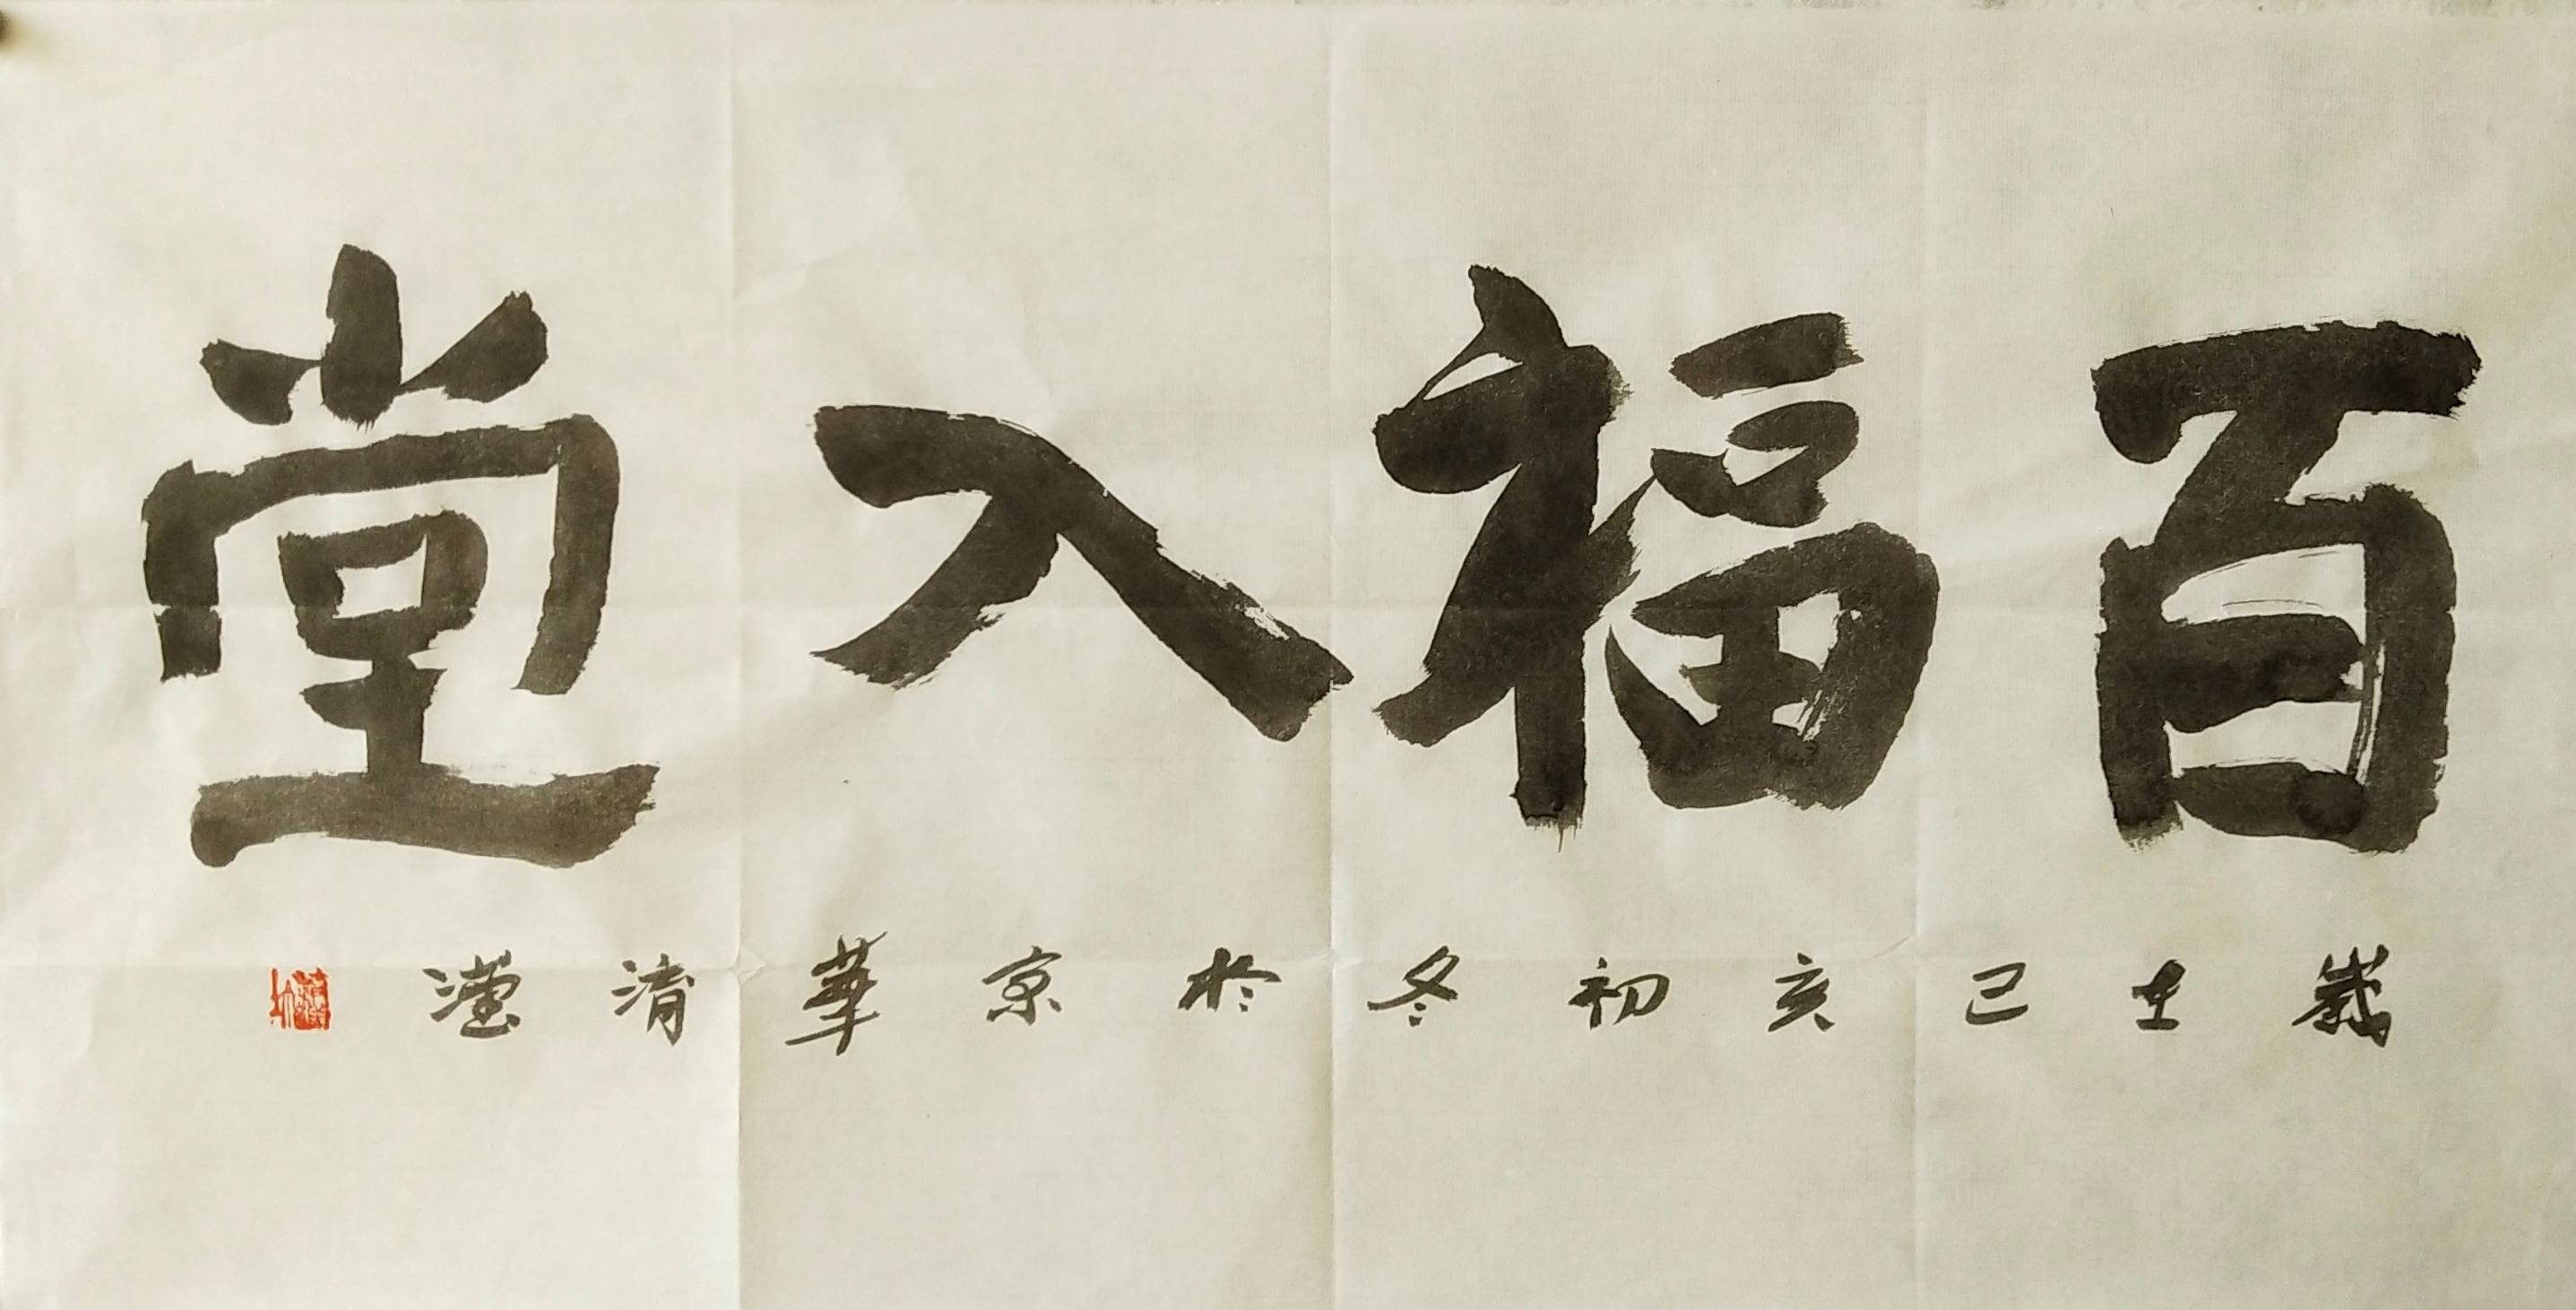 百福入堂
歲在己亥初冬於京華淯瀅